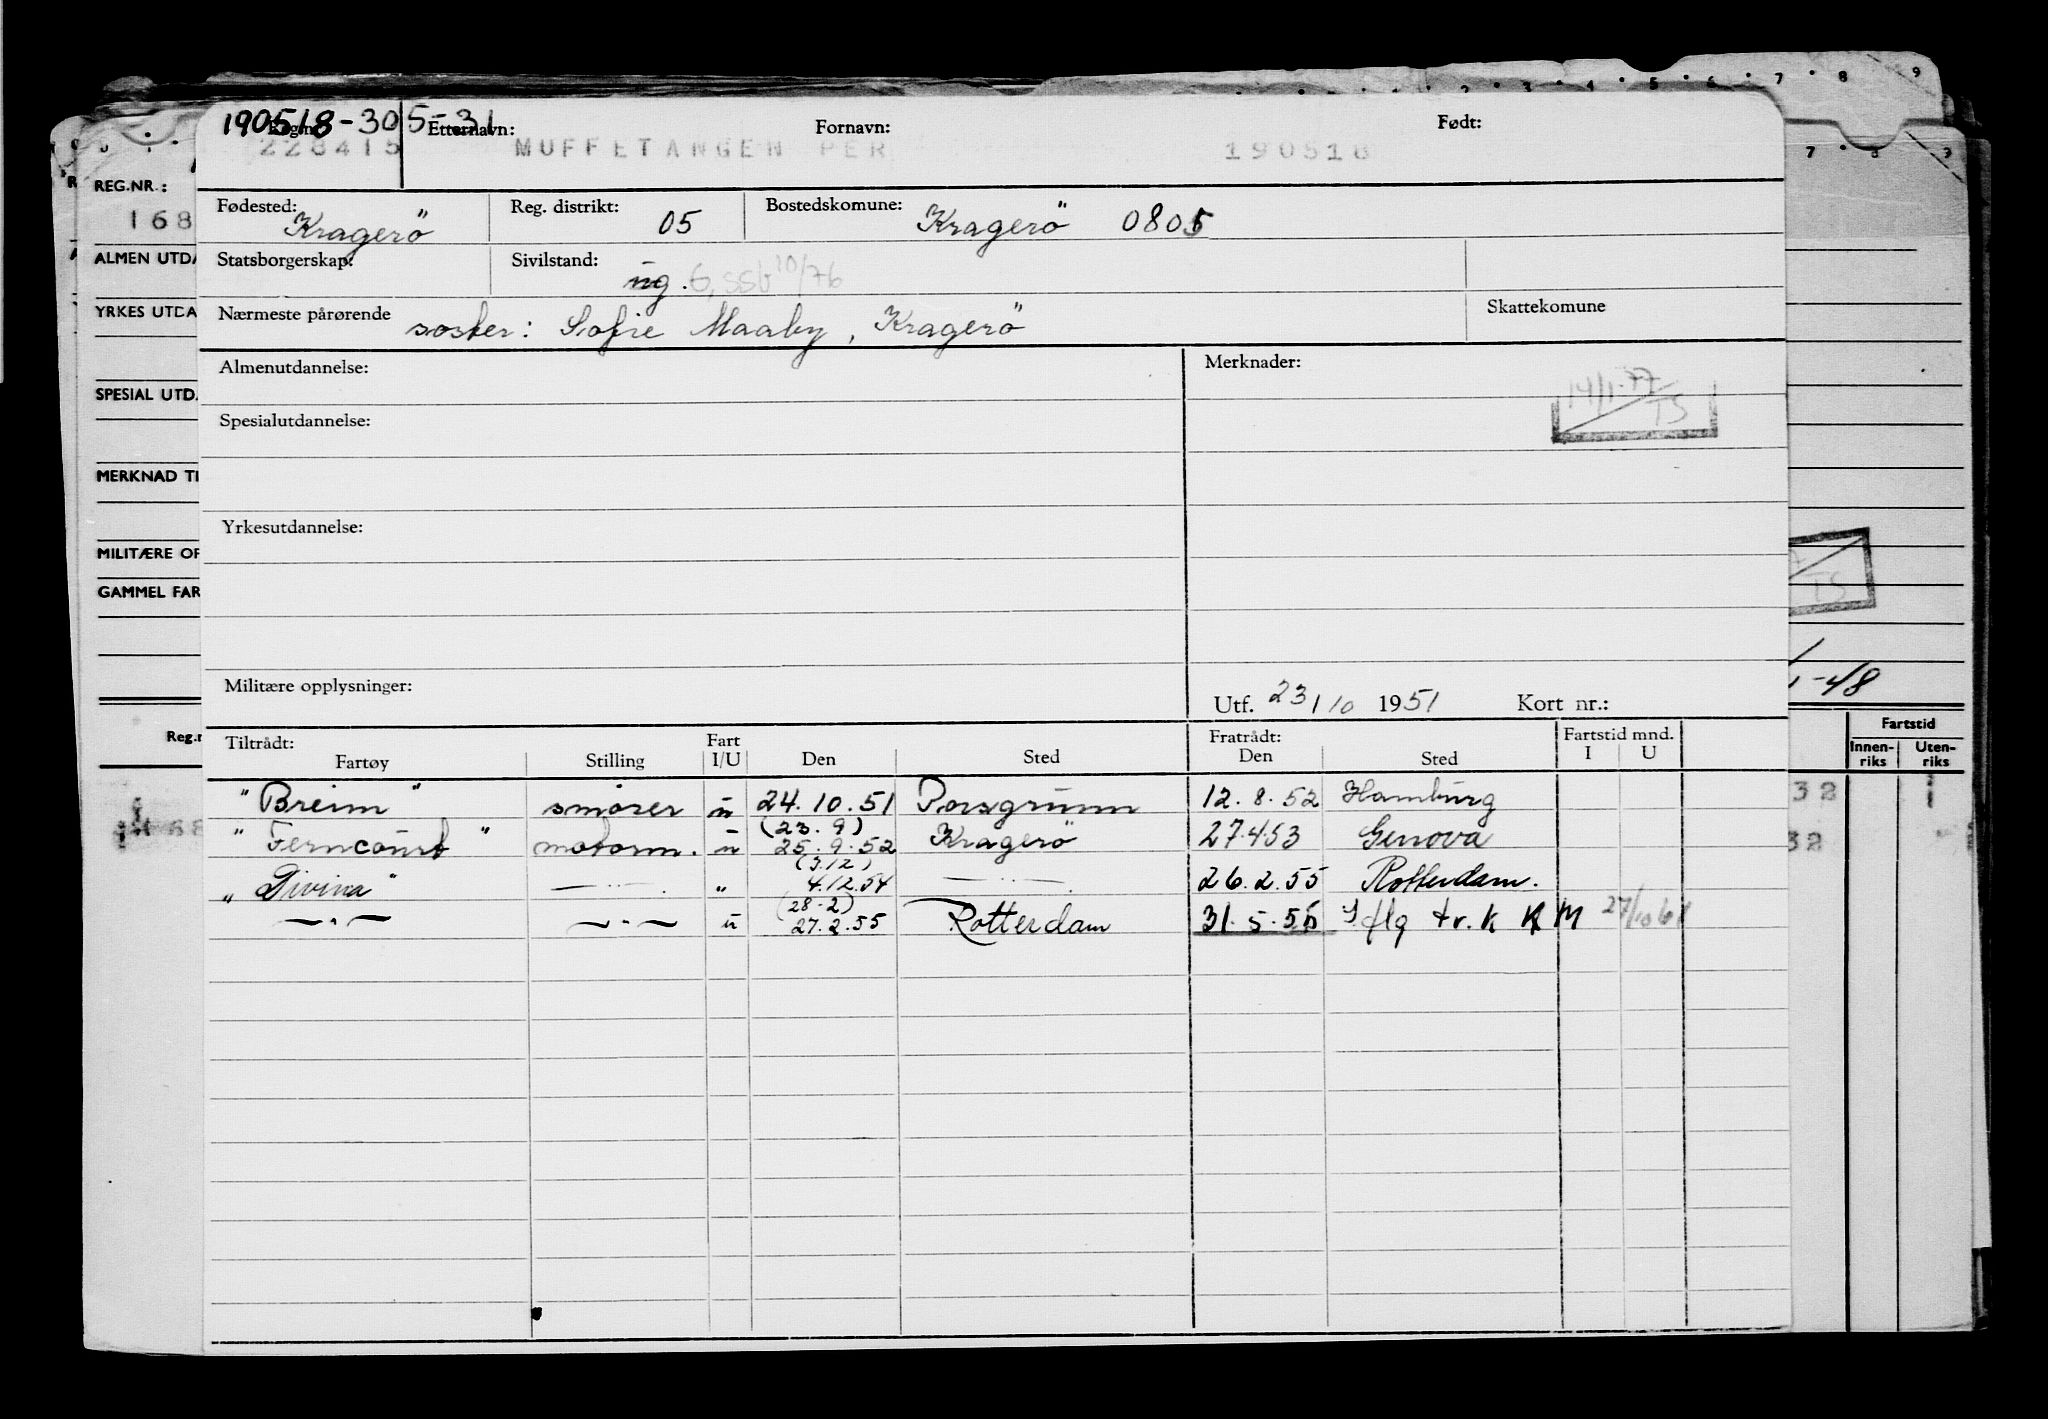 190518-305-31
Reg.nr. Etternavn: Fornavn: Født:
228415 MUFFETANGEN PER 190518
REG.NR.:
168
Fødested: Kragerö Reg. distrikt: 05 Bostedskomune: Kragerö 0805
ALMEN UTDA
Statsborgerskap: Sivilstand: ug. G, SSB 10/76
YRKES UTDA
Nærmeste pårørende søster: Sofie Maaby, Kragerö Skattekomune
Almenutdannelse: Merknader:
14/1-77
TS
SPESIAL UTD.
Spesialutdannelse:
MERKNAD TI
Yrkesutdannelse:
MILITÆRE OP
TS
GAMMEL FAR
Militære opplysninger:
Utf. 23/10 1951 Kort nr.:
1-48
Reg.n
Tiltrådt: Fart Fratrådt: Fartstid mnd. Fartstid
Fartøy Stilling I/U Den Sted Den Sted I U Innen-riks Uten-riks
"Breim" smører u 24.10.51 Porsgrunn 12.8.52 Hamburg
32
(23.9)
"Ferncourt" motorm. u 25.9.52 Kragerö 27.4.53 Genova
32
(3.12)
"Divina" —"— " 4.12.54 —"— 26.2.55 Rotterdam.
(28-2)
—"— —"— u 27.2.55 Rotterdam 31.5.55 flg tr.k KM 27/10 61